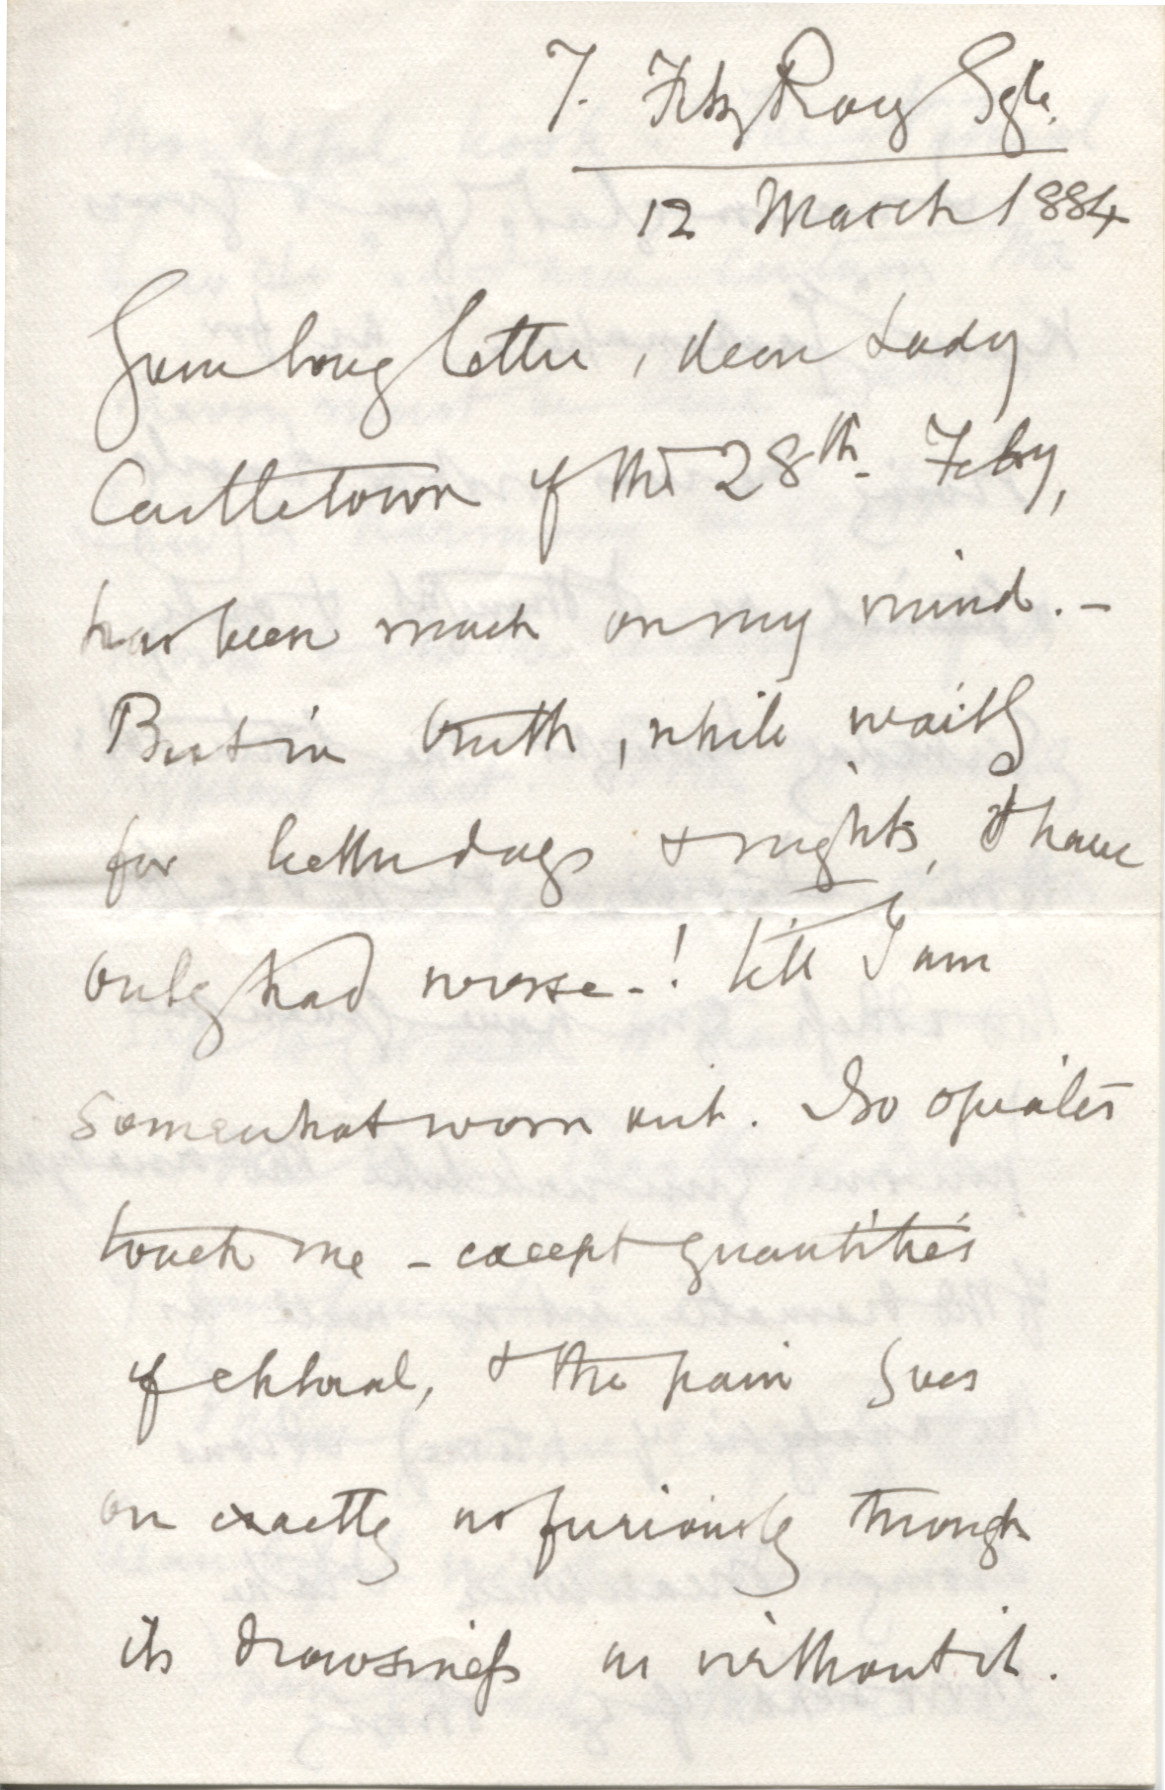 7. FitzRoy Sqre.
12 March 1884
Your long letter, dear Lady
Castletown of the 28th. Feby,
has been much on my mind. –
But in truth, while waitg
for better days & nights, I have
only had worse – ! till I am
somewhat worn out. No opiates
touch me – except quantities
of chloral, & the pain goes
on exactly as furiously through
its drowsiness as without it.